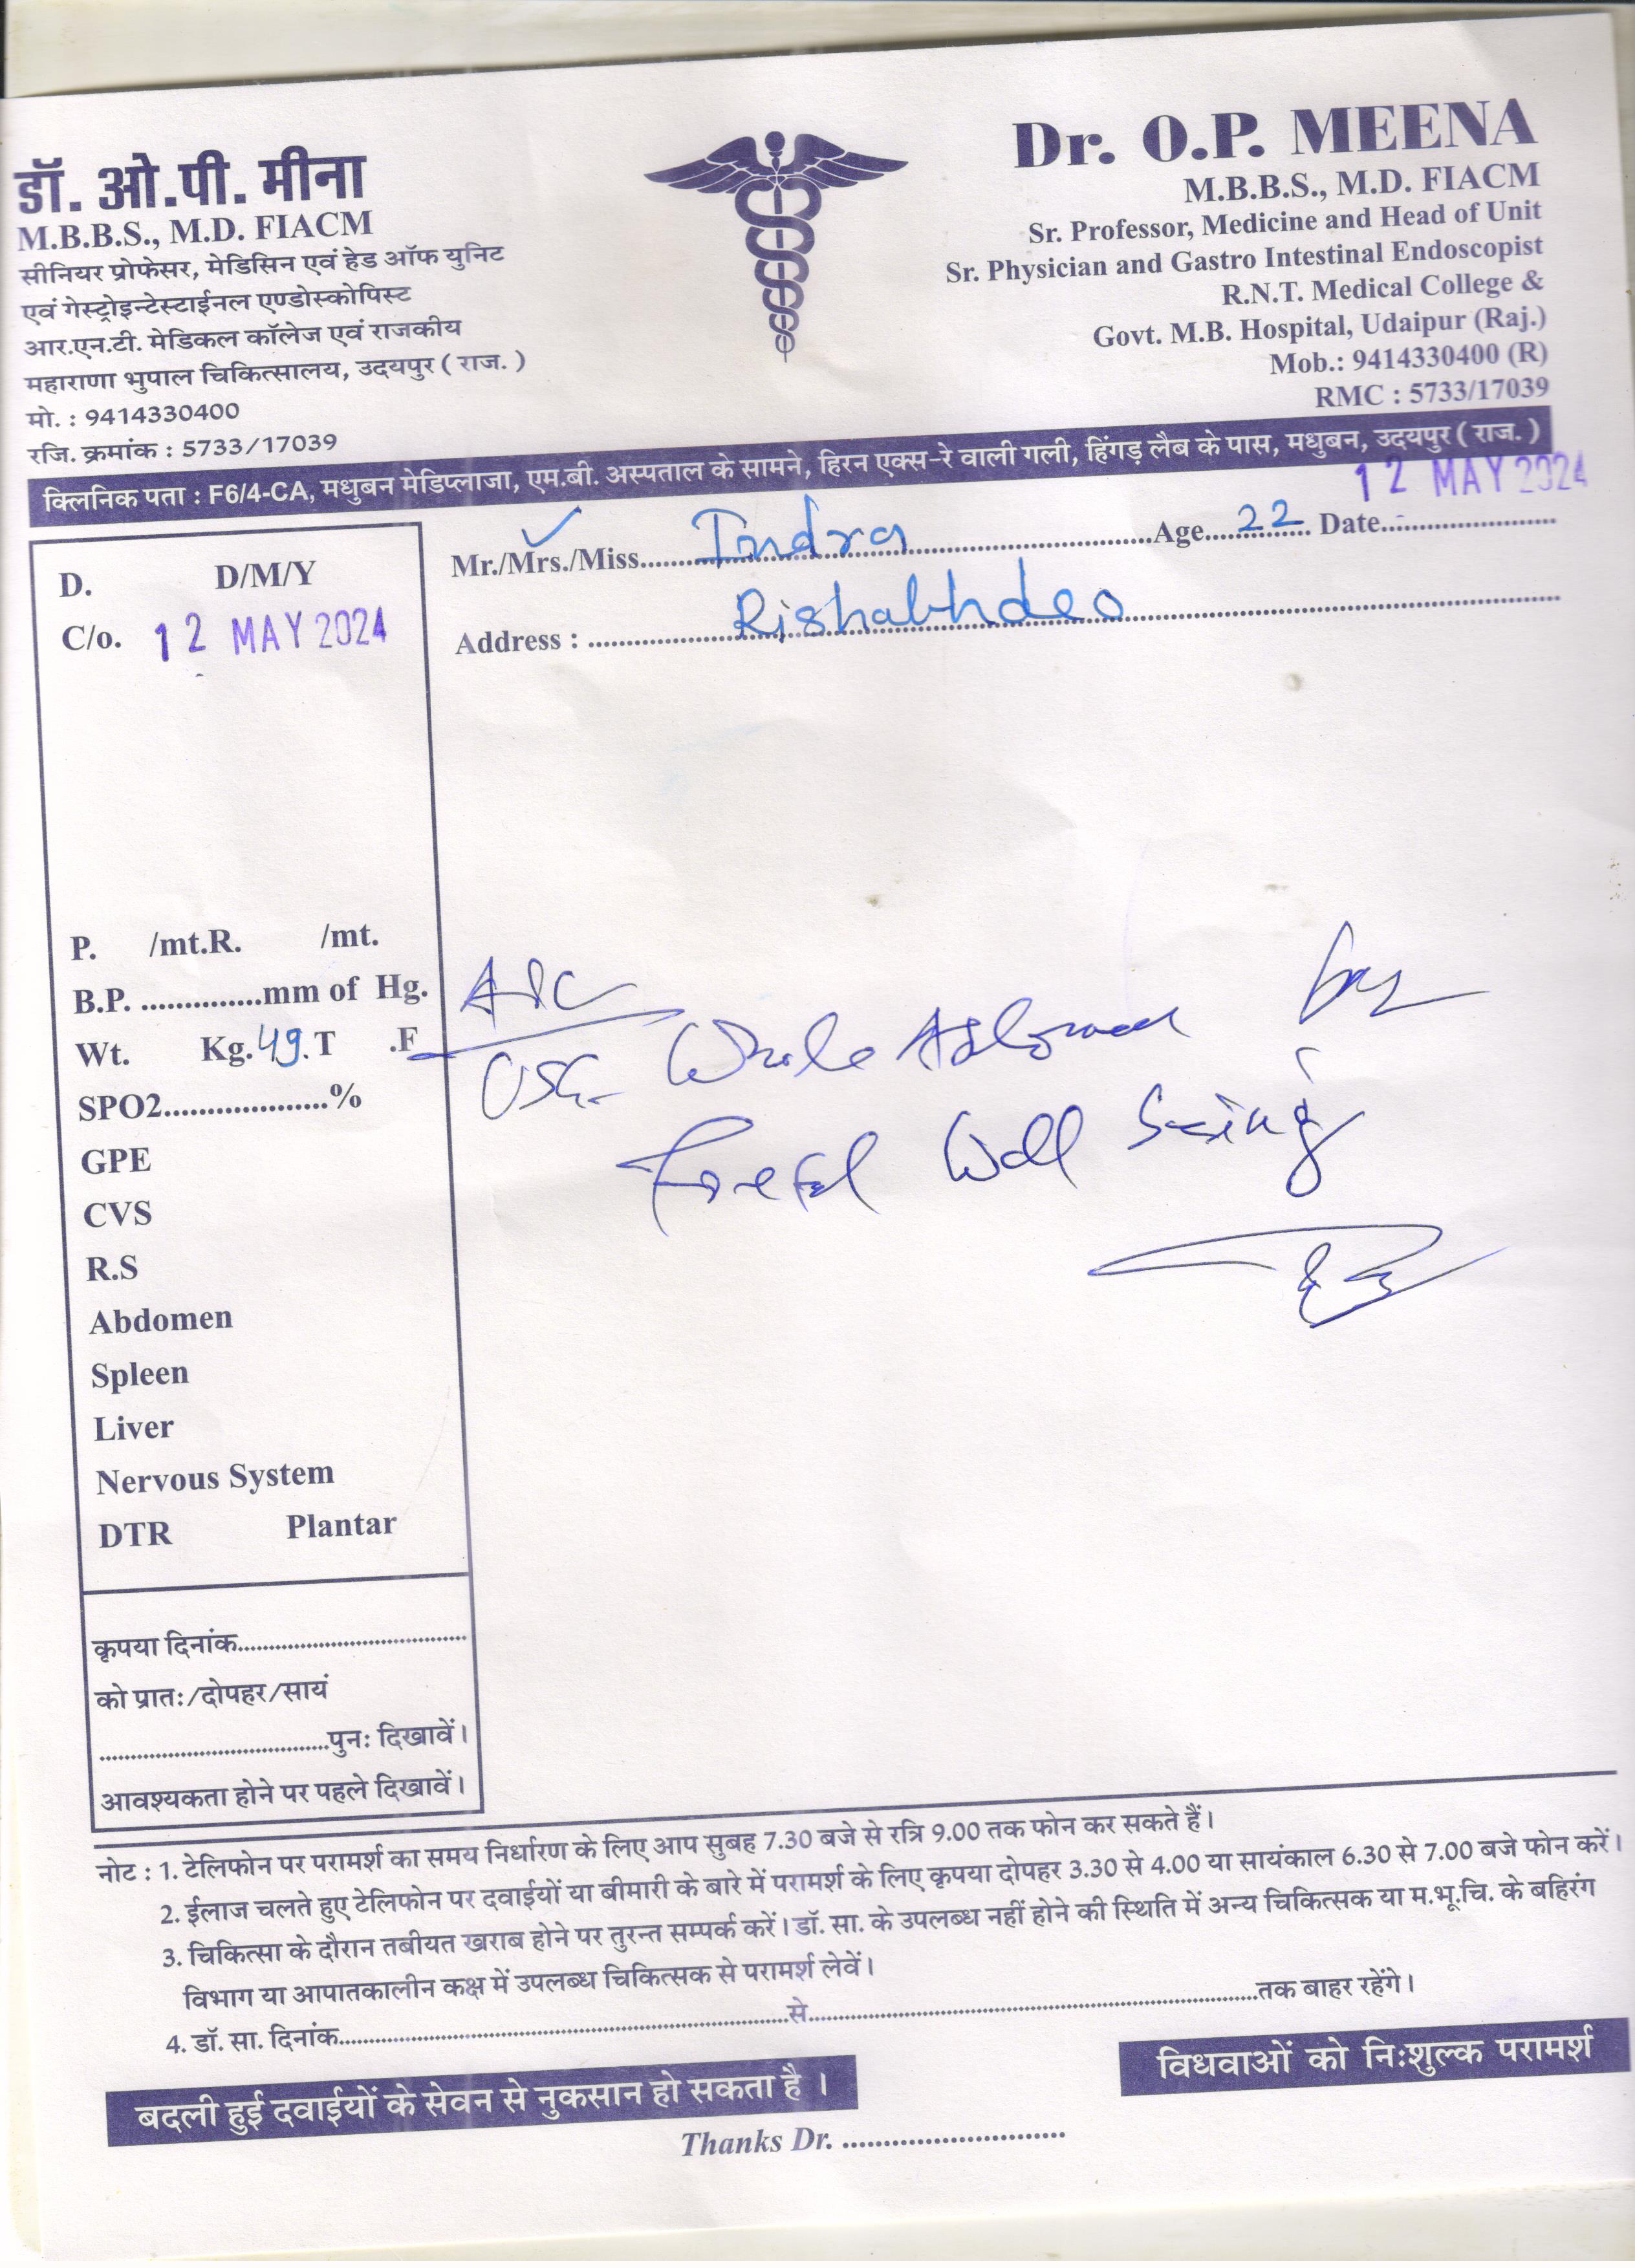 डॉ. ओ.पी. मीना
M.B.B.S., M.D. FIACM
सीनियर प्रोफेसर, मेडिसिन एवं हेड ऑफ युनिट
एवं गेस्ट्रोइन्टेस्टाईनल एण्डोस्कोपिस्ट
आर.एन.टी. मेडिकल कॉलेज एवं राजकीय
महाराणा भुपाल चिकित्सालय, उदयपुर ( राज. )
मो. : 9414330400
रजि. क्रमांक : 5733/17039
Dr. O.P. MEENA
M.B.B.S., M.D. FIACM
Sr. Professor, Medicine and Head of Unit
Sr. Physician and Gastro Intestinal Endoscopist
R.N.T. Medical College &
Govt. M.B. Hospital, Udaipur (Raj.)
Mob.: 9414330400 (R)
RMC : 5733/17039
क्लिनिक पता : F6/4-CA, मधुबन मेडिप्लाजा, एम.बी. अस्पताल के सामने, हिरन एक्स-रे वाली गली, हिंगड़ लैब के पास, मधुबन, उदयपुर ( राज. )
12 MAY 2024
Mr./Mrs./Miss......Indra......Age....22.... Date......
Address : ......Rishabhdeo......
D. D/M/Y
C/o. 12 MAY 2024
P. /mt.R. /mt.
B.P. ..............mm of Hg.
Wt. Kg.49.T .F
SPO2....................%
GPE
CVS
R.S
Abdomen
Spleen
Liver
Nervous System
DTR Plantar
USG Whole Abdomen
Wall
कृपया दिनांक......
को प्रातः/दोपहर/सायं
......पुनः दिखावें।
आवश्यकता होने पर पहले दिखावें।
नोट : 1. टेलिफोन पर परामर्श का समय निर्धारण के लिए आप सुबह 7.30 बजे से रात्रि 9.00 तक फोन कर सकते हैं।
2. ईलाज चलते हुए टेलिफोन पर दवाईयों या बीमारी के बारे में परामर्श के लिए कृपया दोपहर 3.30 से 4.00 या सायंकाल 6.30 से 7.00 बजे फोन करें।
3. चिकित्सा के दौरान तबीयत खराब होने पर तुरन्त सम्पर्क करें। डॉ. सा. के उपलब्ध नहीं होने की स्थिति में अन्य चिकित्सक या म.भू.चि. के बहिरंग
विभाग या आपातकालीन कक्ष में उपलब्ध चिकित्सक से परामर्श लेवें।
4. डॉ. सा. दिनांक......से......तक बाहर रहेंगे।
बदली हुई दवाईयों के सेवन से नुकसान हो सकता है ।
विधवाओं को निःशुल्क परामर्श
Thanks Dr. ...........................